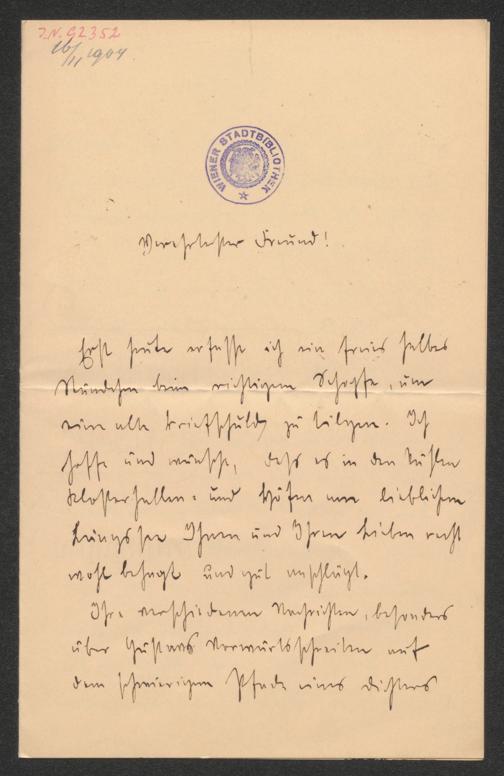 J.N. 92352
16/11 1904
WIENER STADTBIBLIOTHEK
Verehrtester Freund!
Erst heute erfasse ich ein freies halbes
Stündchen beim richtigen Schopfe, um
eine alte Briefschuld zu tilgen. Ich
hoffe und wünsche, dass es in den kühlen
Klosterhallen- und Höfen am lieblichen
Ihnen und Ihren Lieben recht
wohl behagt und gut anschlägt.
Ihre verschiedenen Nachrichten, besonders
über Gustavs Vorwärtsschreiten auf
dem schwierigen Pfade eines Dichters